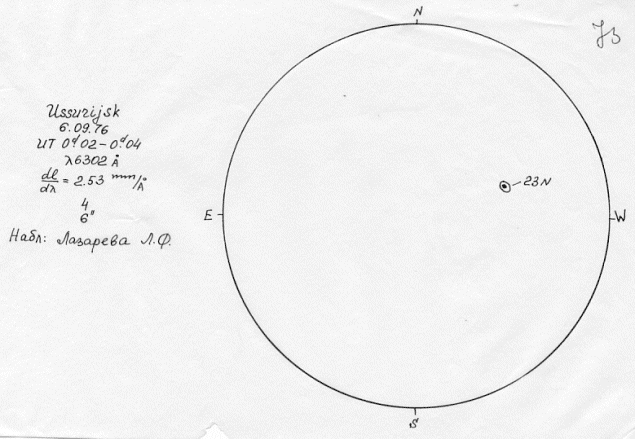 N
Ussurijsk
6.09.76
UT 0ᵈ02-0ᵈ04
λ6302 Å
dl/dλ = 2.53 mm/Å
4
6"
Набл: Лазарева Л.Ф.
E
W
23N
S